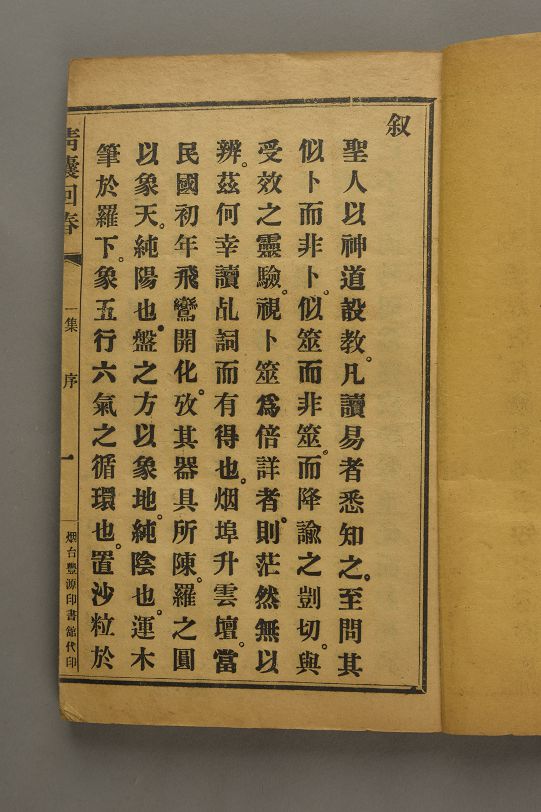 叙
聖人以神道設教。凡讀易者悉知之。至問其
似卜而非卜。似筮而非筮。而降諭之剴切。與
受效之靈驗。視卜筮爲倍詳者。則茫然無以
辨。茲何幸讀乩詞而有得也。烟埠升雲壇。當
民國初年飛鸞開化。攷其器具所陳。羅之圓
以象天。純陽也。盤之方以象地。純陰也。運木
筆於羅下。象五行六氣之循環也。置沙粒於
青囊回春
一集 序 一
烟台豐源印書舘代印